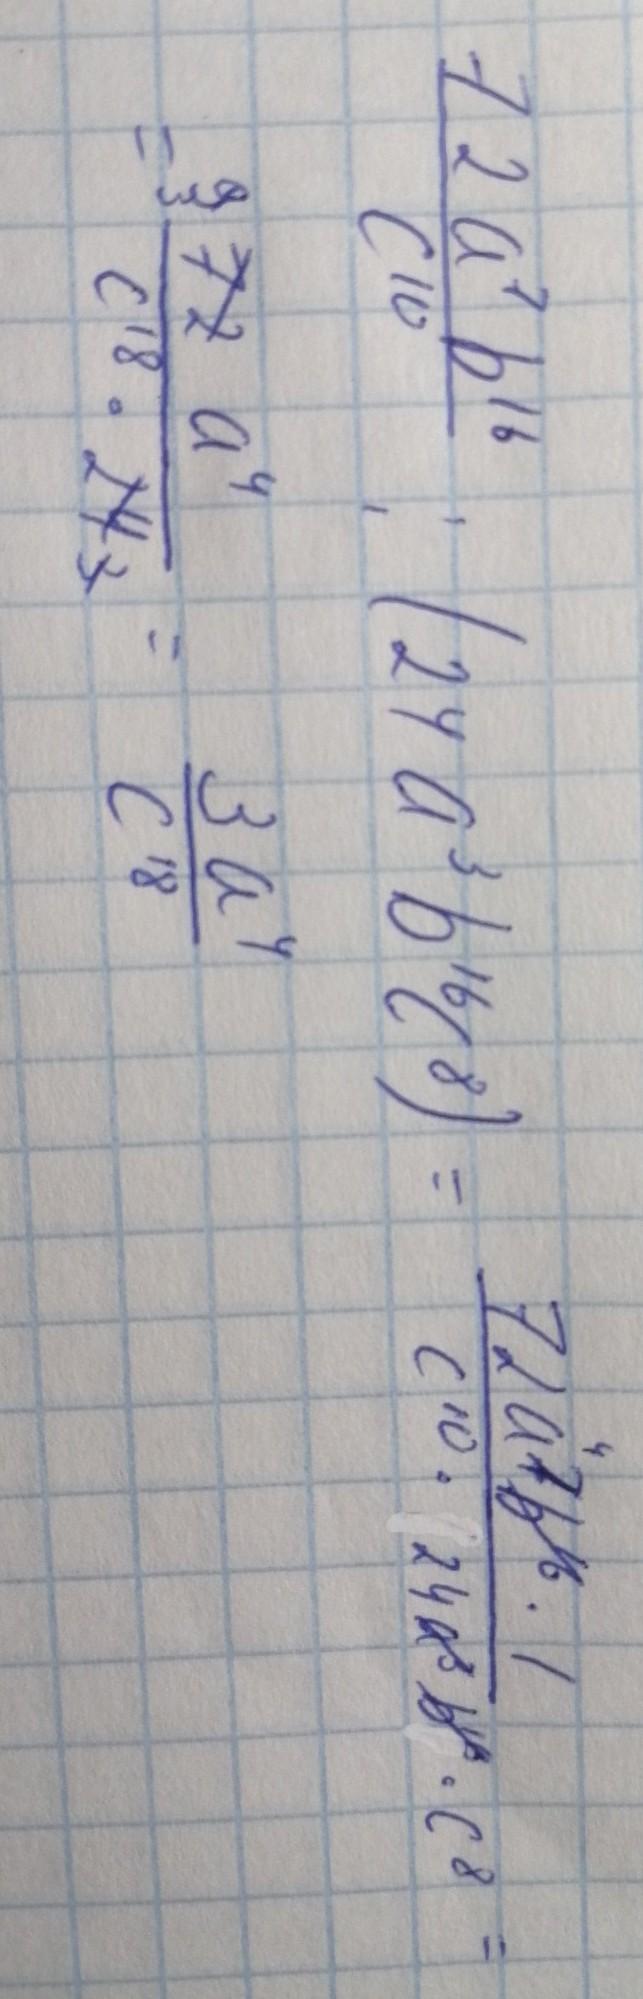 72a⁷b¹⁶/c¹⁰ : (24a³b¹⁶c⁸) = 72a⁷⁴b¹⁶ · 1/c¹⁰ · 24a³b¹⁶ · c⁸ =
= 72 9 3 a⁴/c¹⁸ · 24 3 = 3a⁴/c¹⁸